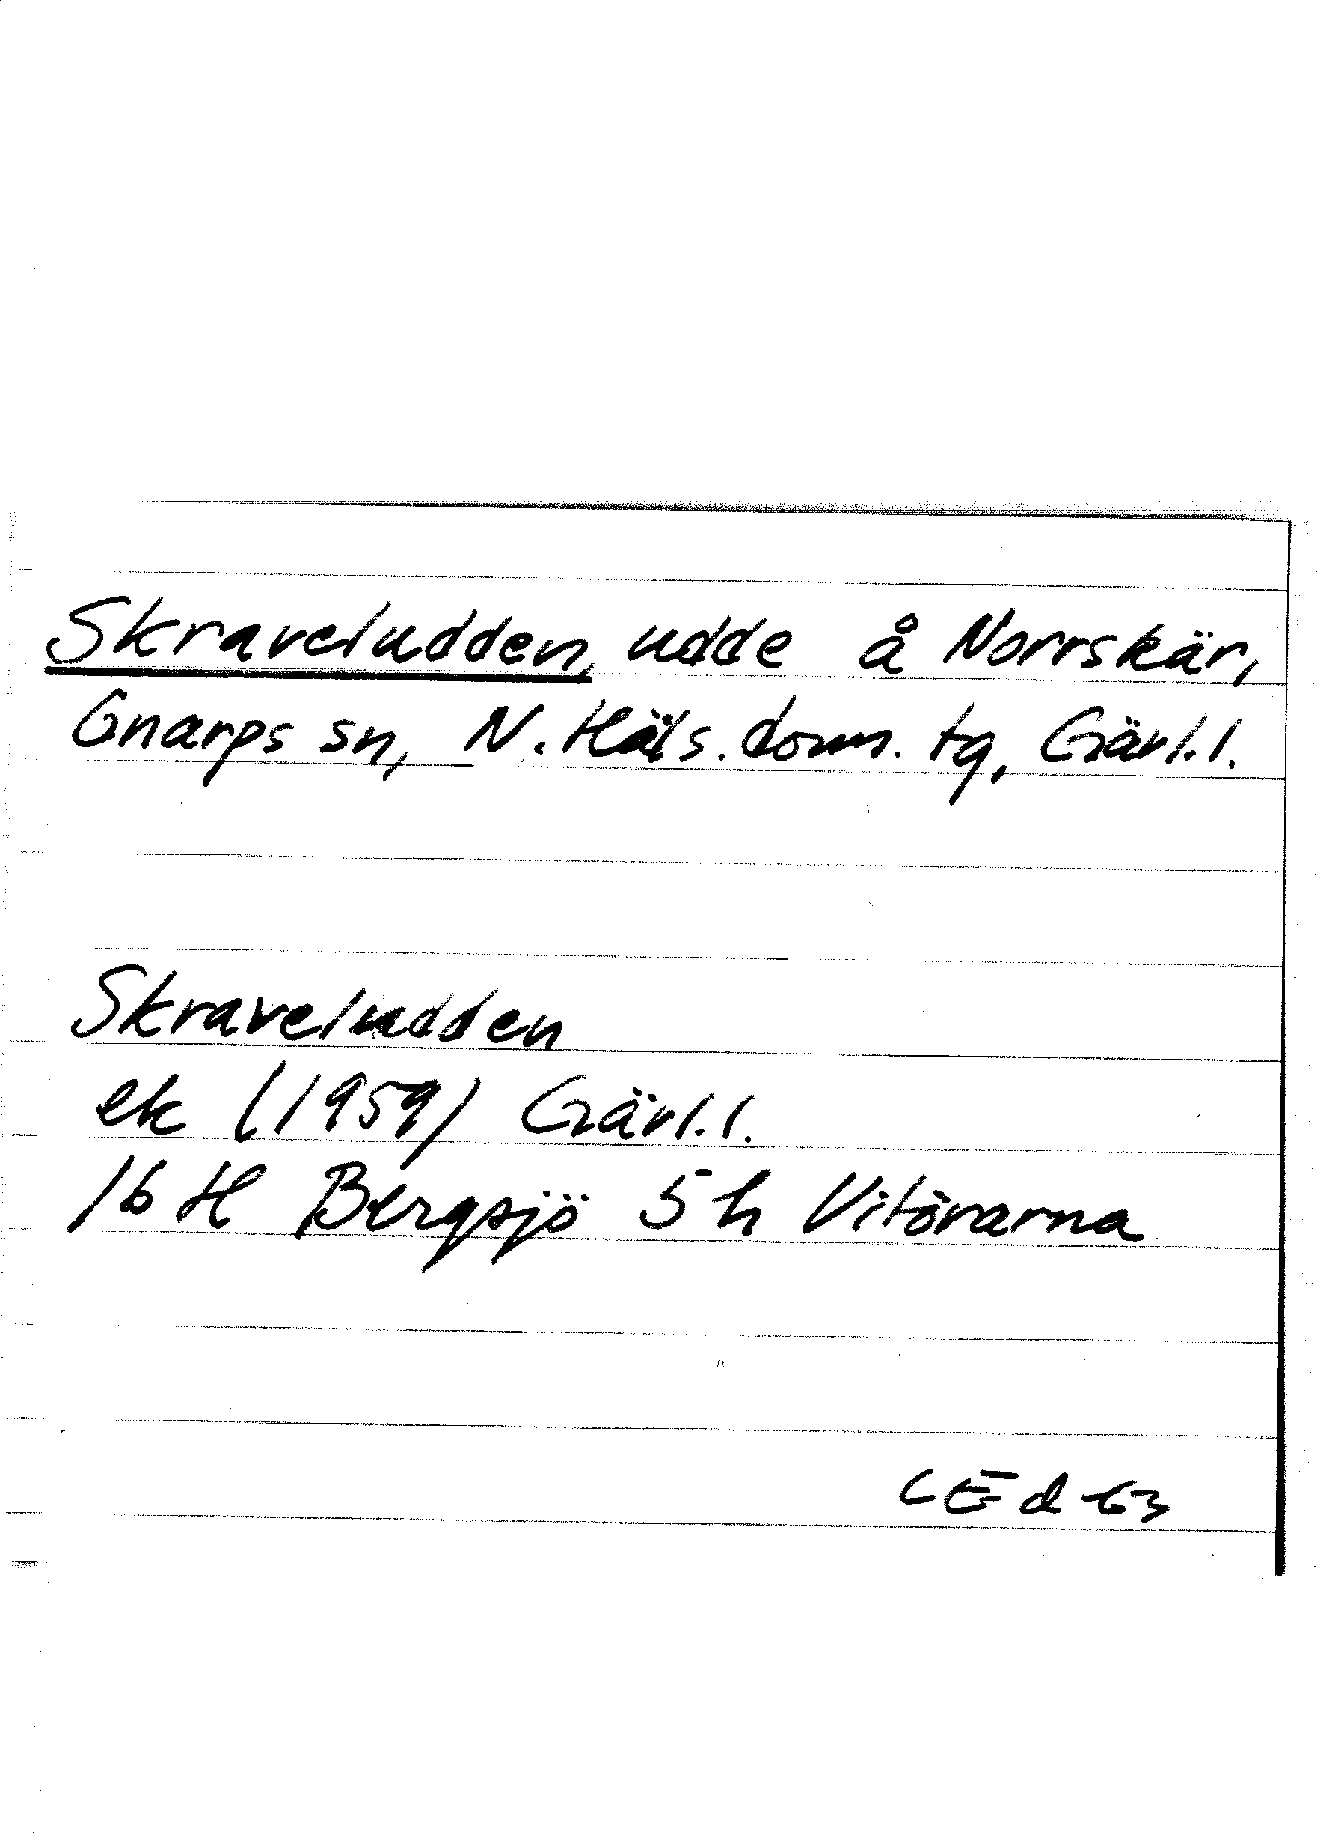 Skraveludden, udde å Norrskär,
Gnarps sn, N. Häls. doms. tg, Gävl. l.
Skraveludden
ek (1959) Gävl. l.
16 H Bergsjö 5 h Vitörarna
CEd 63